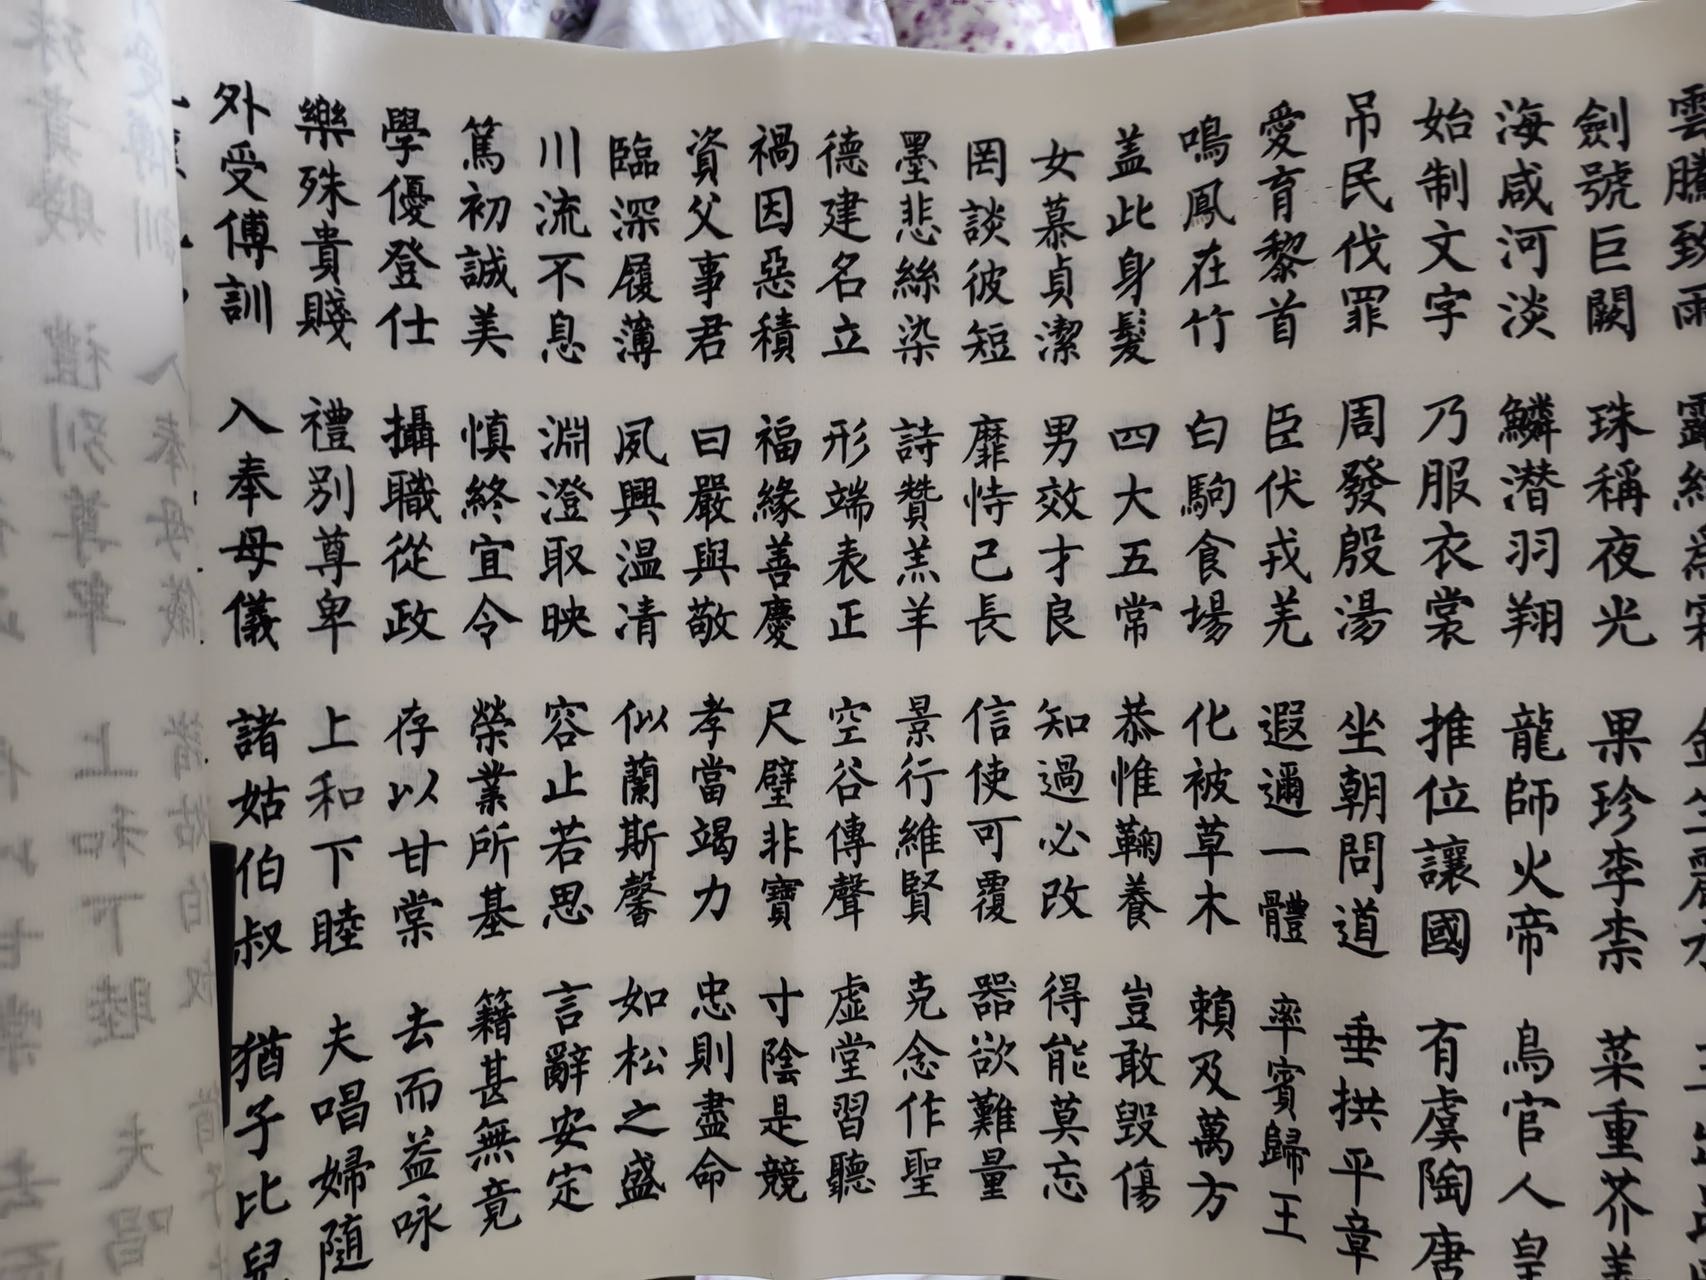 雲騰致雨 露
劍號巨闕 珠稱夜光 果珍李柰 菜重芥
海咸河淡 鱗潜羽翔 龍師火帝 鳥官人皇
始制文字 乃服衣裳 推位讓國 有虞陶唐
吊民伐罪 周發殷湯 坐朝問道 垂拱平章
愛育黎首 臣伏戎羌 遐邇一體 率賓歸王
鳴鳳在竹 白駒食場 化被草木 賴及萬方
盖此身髮 四大五常 恭惟鞠養 豈敢毀傷
女慕貞潔 男效才良 知過必改 得能莫忘
罔談彼短 靡恃己長 信使可覆 器欲難量
墨悲絲染 詩贊羔羊 景行維賢 克念作聖
德建名立 形端表正 空谷傳聲 虚堂習聽
禍因惡積 福緣善慶 尺璧非寶 寸陰是競
資父事君 曰嚴與敬 孝當竭力 忠則盡命
臨深履薄 夙興温清 似蘭斯馨 如松之盛
川流不息 淵澄取映 容止若思 言辭安定
篤初誠美 慎終宜令 榮業所基 籍甚無竟
學優登仕 攝職從政 存以甘棠 去而益咏
樂殊貴賤 禮別尊卑 上和下睦 夫唱婦隨
外受傅訓 入奉母儀 諸姑伯叔 猶子比兒